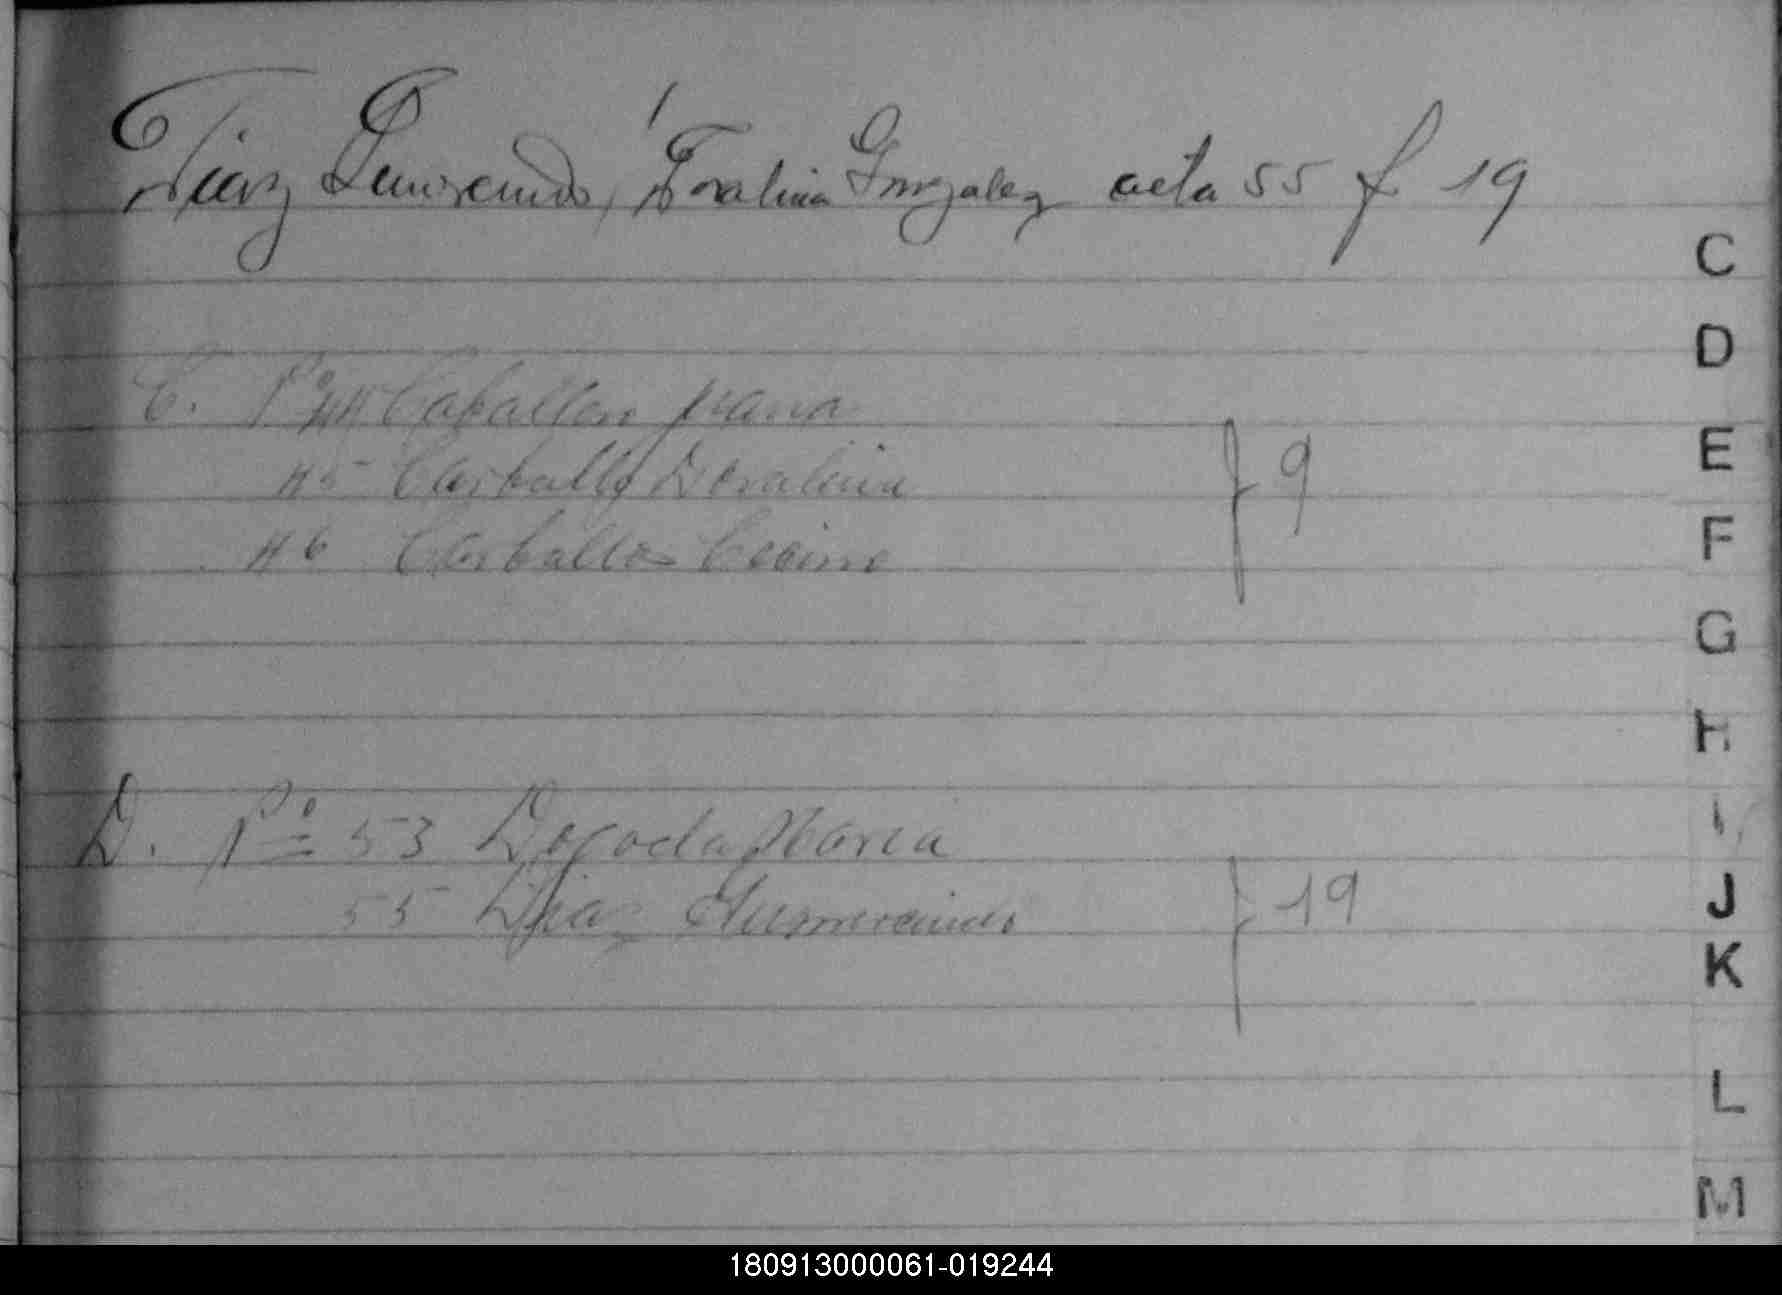 Diaz Gumersindo, Doralina Gonzalez acta 55 f 19
C. Pº 44 Caballero Juana
45 Carballo Doralina
46 Carballo
9
D. Pº 53 Maria
55 Diaz Gumercindo
19
C
D
E
F
G
H
I
J
K
L
M
180913000061-019244